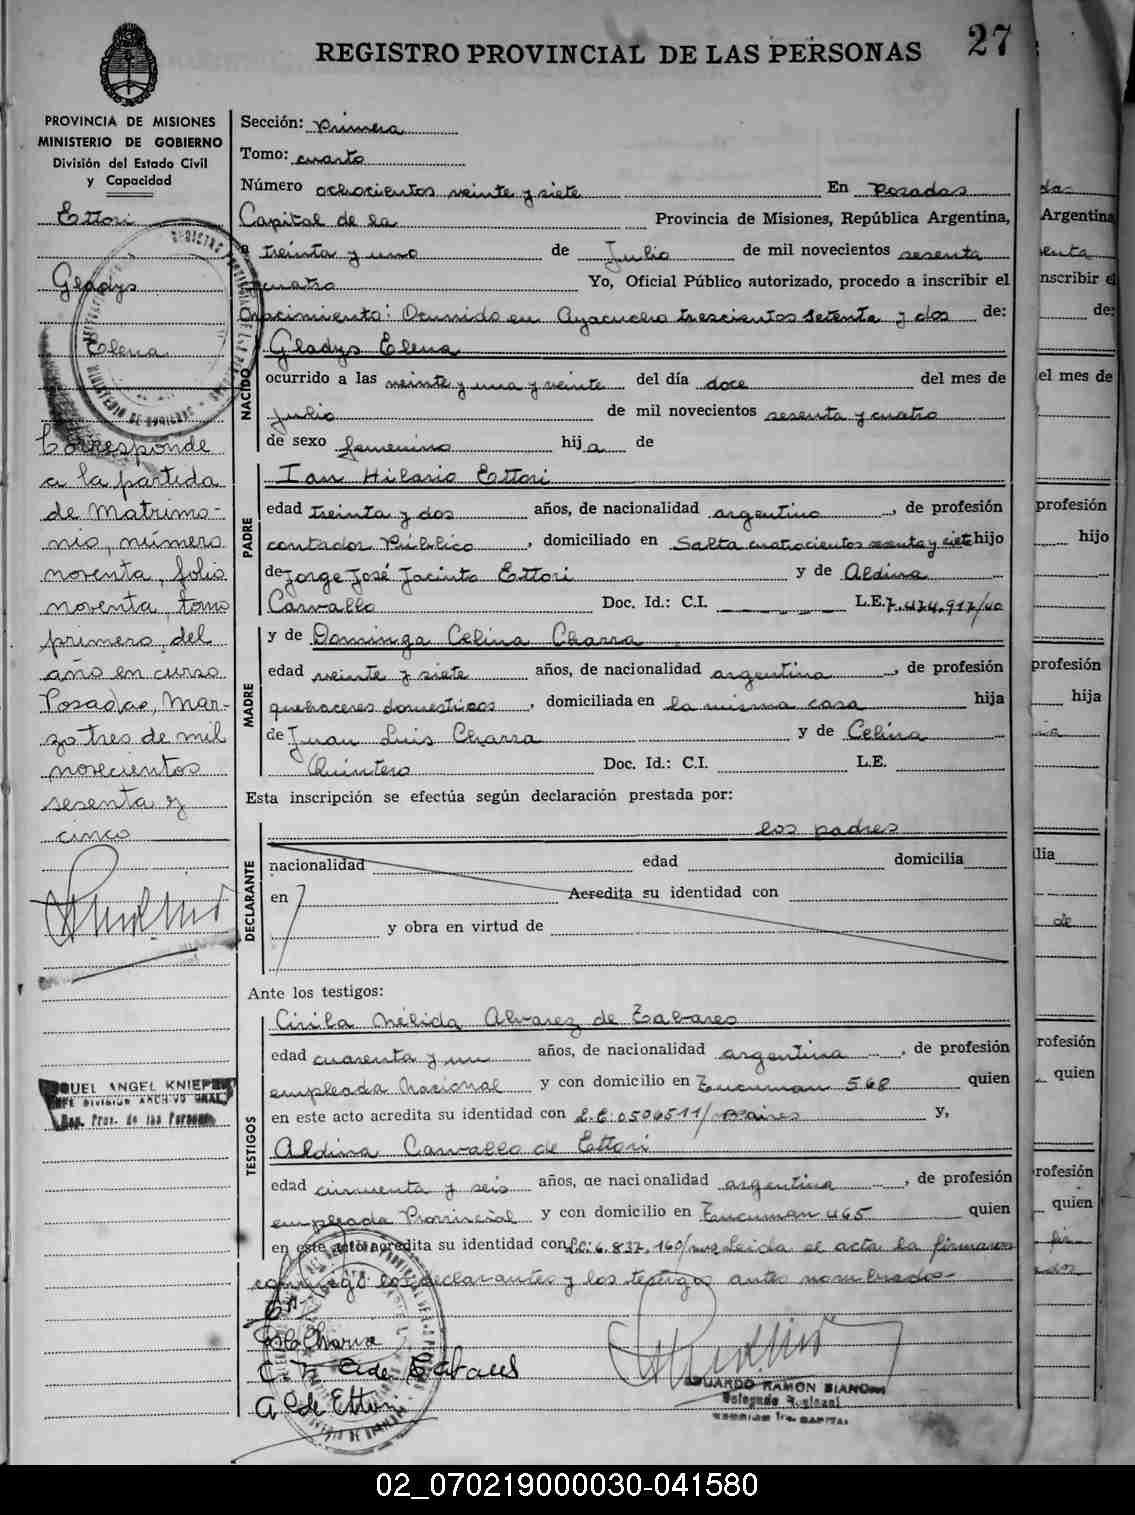 27
REGISTRO PROVINCIAL DE LAS PERSONAS
PROVINCIA DE MISIONES
MINISTERIO DE GOBIERNO
División del Estado Civil
y Capacidad
Ettori
Gladys
Elena
Corresponde
a la partida
de Matrimo-
nio, número
noventa, folio
noventa, tomo
primero, del
año en curso
Posadas, Mar-
zo tres de mil
novecientos
sesenta y
cinco
Sección: Primera
Tomo: cuarto
Número ochocientos veinte y siete En Posadas
Capital de la Provincia de Misiones, República Argentina,
a treinta y uno de Julio de mil novecientos sesenta
cuatro Yo, Oficial Público autorizado, procedo a inscribir el
nacimiento: Ocurrido en Ayacucho trescientos setenta y dos de:
NACIDO
Gladys Elena
ocurrido a las veinte y una y veinte del día doce del mes de
Julio de mil novecientos sesenta y cuatro
de sexo femenino hija de
PADRE
Ian Hilario Ettori
edad treinta y dos años, de nacionalidad argentino, de profesión
contador Público, domiciliado en Salta cuatrocientos sesenta y siete hijo
de Jorge José Jacinto Ettori y de Aldina
Carvallo Doc. Id.: C.I. L.E. 7.474.917/40
MADRE
y de Dominga Celina Charra
edad veinte y siete años, de nacionalidad argentina, de profesión
quehaceres domésticos, domiciliada en la misma casa hija
de Juan Luis Charra y de Celina
Quintero Doc. Id.: C.I. L.E.
Esta inscripción se efectúa según declaración prestada por:
los padres
DECLARANTE
nacionalidad edad domicilia
en Acredita su identidad con
y obra en virtud de
Ante los testigos:
TESTIGOS
Cirila Nélida Alvarez de Tabares
edad cuarenta y un años, de nacionalidad argentina, de profesión
empleada Nacional y con domicilio en Tucuman 568 quien
en este acto acredita su identidad con L.C: 0506511/ y,
Aldina Carvallo de Ettori
edad cincuenta y seis años, de nacionalidad argentina, de profesión
empleada Provincial y con domicilio en Tucuman 465 quien
en este acto acredita su identidad con L.C: 6.837.160/ Leida el acta la firmaron
conmigo los declarantes y los testigos antes nombrados-
A C de Ettori
EDUARDO RAMON BIANCHI
Delegado Regional
ANGEL KNIEP
DIVISION ARCHIVO GRAL.
Reg. Prov. de las Personas
Argentina
inscribir el
de:
el mes de
profesión
hijo
profesión
hija
ilia
de
rofesión
quien
rofesión
quien
02_070219000030-041580